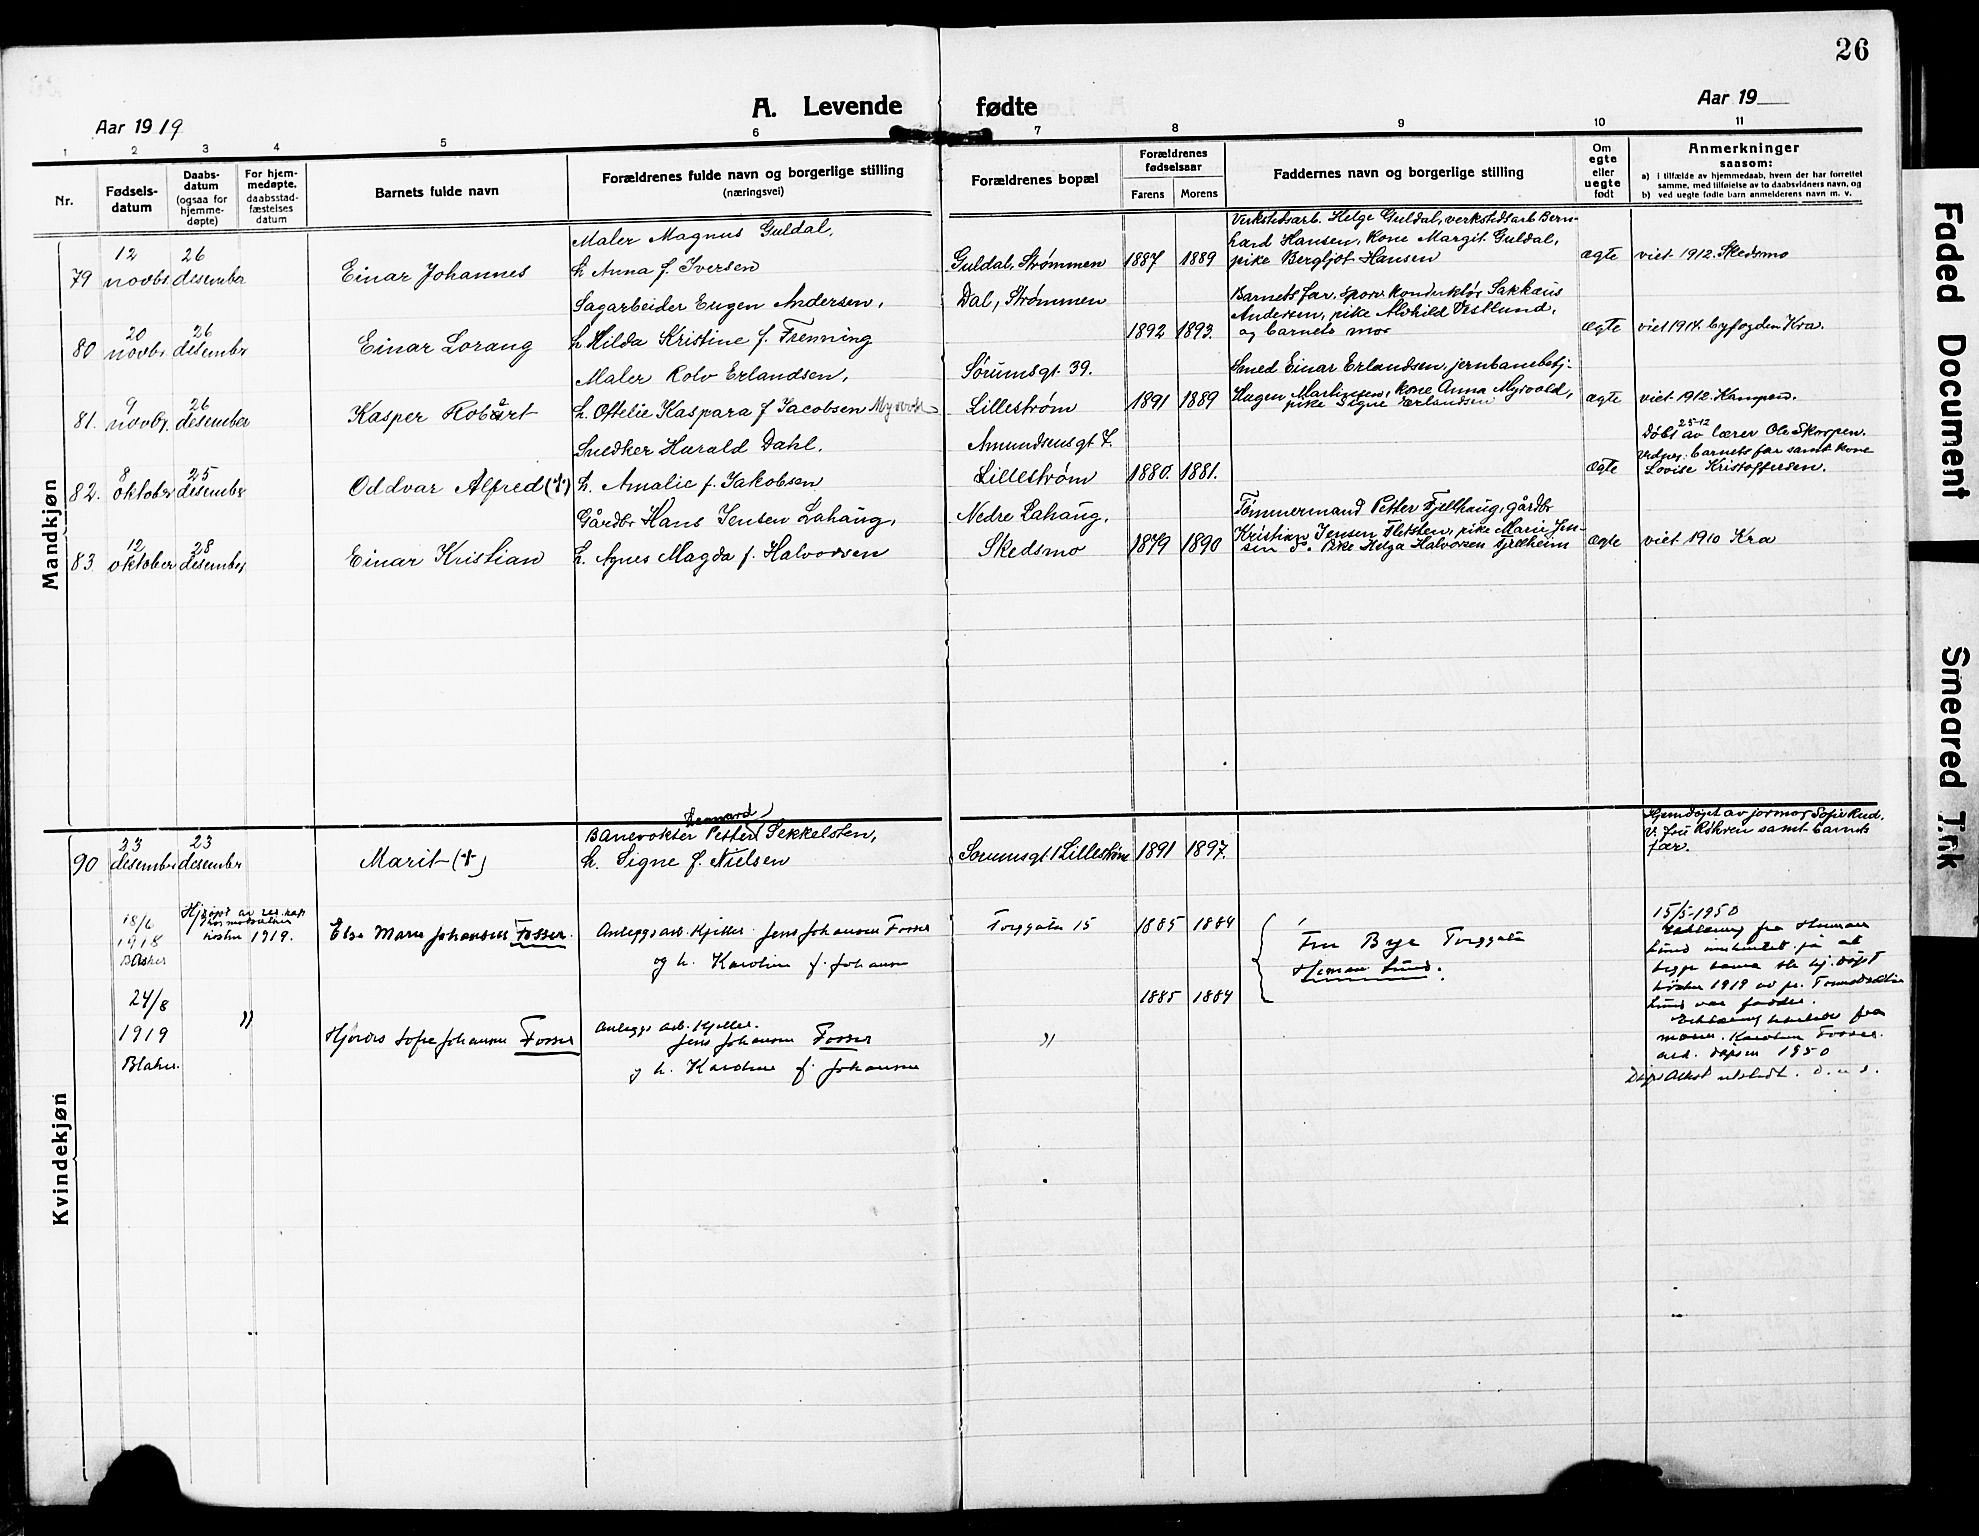 26
A. Levende fødte
Aar 1919
Aar 19
1 2 3 4 5 6 7 8 9 10 11
Nr.
Fødsels-
datum
Daabs-
datum
(ogsaa for
hjemme-
døpte)
For hjem-
medøpte,
daabsstad-
fæstelses
datum
Barnets fulde navn
Forældrenes fulde navn og borgerlige stilling
(næringsvei)
Forældrenes bopæl
Forældrenes
fødselsaar
Farens Morens
Faddernes navn og borgerlige stilling
Om
egte
eller
uegte
født
Anmerkninger
saasom:
a) i tilfælde av hjemmedaab, hvem der har forrettet
samme, med tilføielse av to daabsvidners navn, og
b) ved uegte fødte barn anmelderens navn m. v.
Mandkjøn
79
12
novbr
26
desember
Einar Johannes
Maler Magnus Guldal,
h. Anna f. Iversen
Guldal, Strømmen
1887 1889
Verkstedsarb. Helge Guldal, verkstedsarb Bern-
hard Hansen, kone Margit Guldal,
pike Bergljot Hansen
ægte
viet 1912. Skedsmo
80
20
novbr
26
desember
Einar Lorang
Sagarbeider Eugen Andersen,
h. Hilda Kristine f. Frenning
Dal, Strømmen
1892 1893.
Barnets far, sporv.konduktør Sakkæus
Andersen, pike Alvhild Vestlund,
og barnets mor
ægte
viet 1914. byfogden Kra.
81.
9
novbr.
26
desember
Kasper Robert
Maler Rolv Erlandsen,
h. Ottelie Kaspara f Jacobsen Myrvold
Sørumsgt. 39.
Lillestrøm
1891 1889
Smed Einar Erlandsen, jernbanebetj.
Hagen Martinsen, kone Anna Myrvold,
pike Signe Erlandsen
ægte
viet 1912. Kampen.
82.
8
oktober
25
desember
Oddvar Alfred (†)
Snedker Harald Dahl.
h. Amalie f. Jakobsen
Amundsensgt 7.
Lillestrøm
1880. 1881.
ægte
25-12
Døbt av lærer Ole Skorpen.
Vidner: barnets far samt kone
Lovise Kristoffersen.
83.
12
oktober
28
desember
Einar Kristian
Gårdbr Hans Jensen Lahaug,
h. Agnes Magda f. Halvorsen
Nedre Lahaug,
Skedsmo
1879 1890
Tømmermand Petter Fjellhaug, gårdbr
Kristian Jensen Fletsten, pike Marie Jen-
sen d°. Pike Helga Halvorsen Fjellheim
ægte
viet 1910 Kra
Kvindekjøn
90
23
desember
23
desember
Marit (†)
Leonard
Banevokter Petter Sekkelsten,
h. Signe f. Nielsen
Sørumsgt 1 Lillestrøm
1891 1897.
Hjemdøpt av jormor Sofie Rud.
V. fru Rikren samt barnets
far.
18/6
1918
Blaker
Hjdøpt av res. kap
høsten 1919.
Else Marie Johansen Fosser.
Anleggsarb. Kjeller. Jens Johansen Fosser
og h. Karoline f. Johansen
Torggata 15
1885 1884
Fru Bye Torggata
Herman Lund.
15/5-1950
Erklæring fra Herman
Lund innhentet på at
begge barna ble hj. døpt
høsten 1919 av pr.
Lund var fadder.
Erklæring fra
moren. Karoline Fosser
1950
Dåpsattest utstedt. d.u.s.
24/8
1919
Blaker.
"
Hjørdis Sofie Johansen Fosser
Anleggs arb. Kjeller.
Jens Johansen Fosser
og h. Karoline f. Johansen
"
1885 1884
Faded Document
Smeared Ink